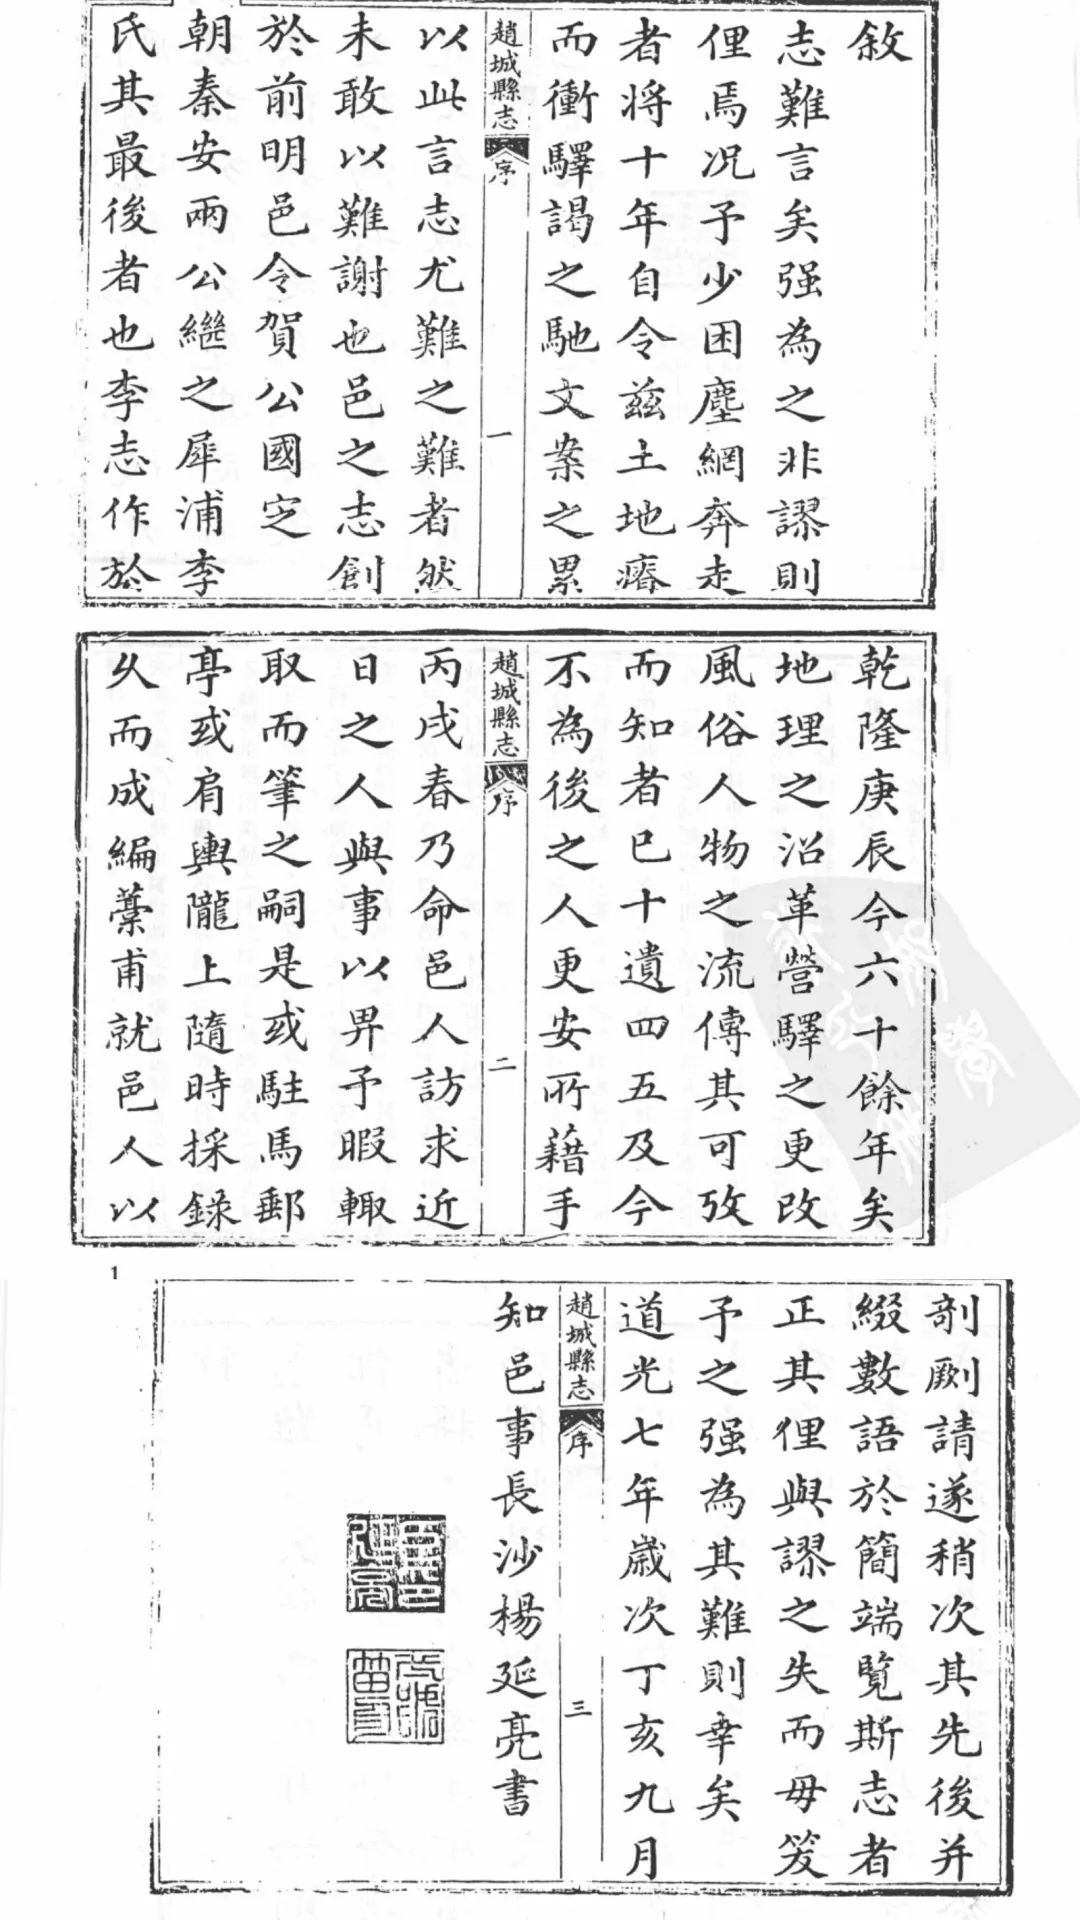 敘
志難言矣强為之非謬則
俚焉况予少困塵網奔走
者将十年自令兹土地瘠
而衝驛謁之馳文案之累
趙城縣志 序 一
以此言志尤難之難者然
未敢以難謝也邑之志創
於前明邑令賀公國定
朝秦安兩公繼之犀浦李
氏其最後者也李志作於
乾隆庚辰今六十餘年矣
地理之沿革營驛之更改
風俗人物之流傳其可攷
而知者已十遺四五及今
不為後之人更安所藉手
趙城縣志 序 二
丙戌春乃命邑人訪求近
日之人與事以畀予暇輙
取而筆之嗣是或駐馬郵
亭或肩輿隴上隨時採錄
久而成編藁甫就邑人以
1
剞劂請遂稍次其先後并
綴數語於簡端覽斯志者
正其俚與謬之失而毋笑
予之强為其難則幸矣
道光七年歲次丁亥九月
趙城縣志 序 三
知邑事長沙楊延亮書